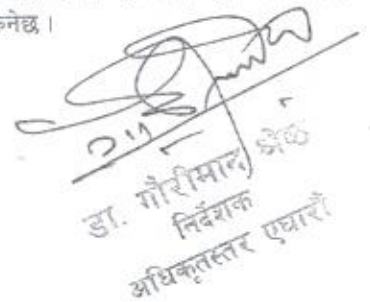 नेछ ।
डा. गौरीमान श्रेष्ठ
निर्देशक
अधिकृतस्तर एघारौं